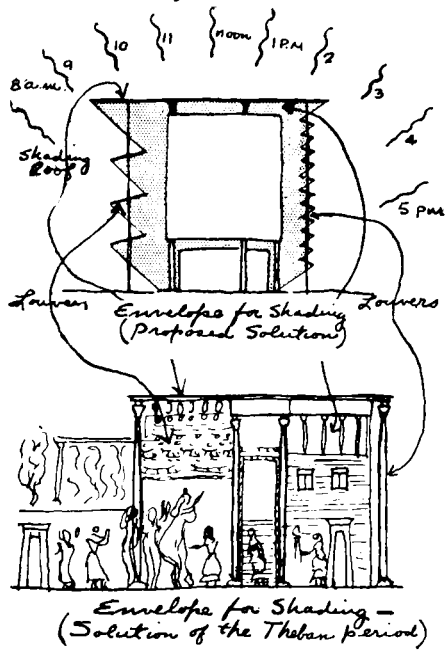 8 a.m. 9 10 11 noon 1 P.M 2 3 4 5 P.M.
Shading
Roof
Louvers Louvers
Envelope for Shading
(Proposed Solution)
Envelope for Shading –
(Solution of the Theban period)